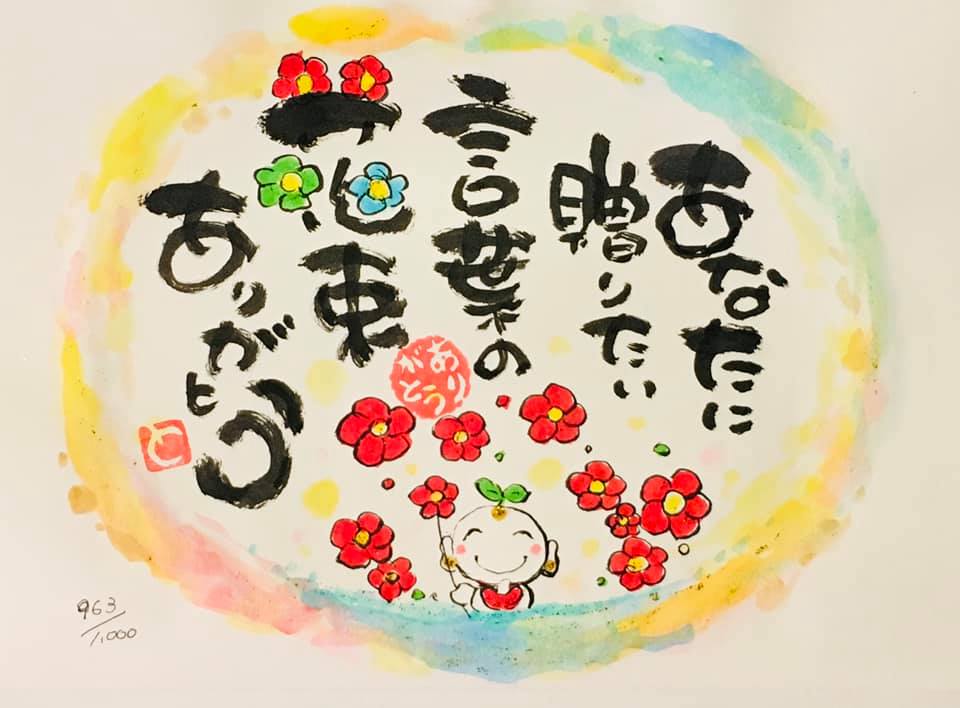 あなたに
贈りたい
言葉の
花束
ありがとう
ありがとう
と
963/1,000